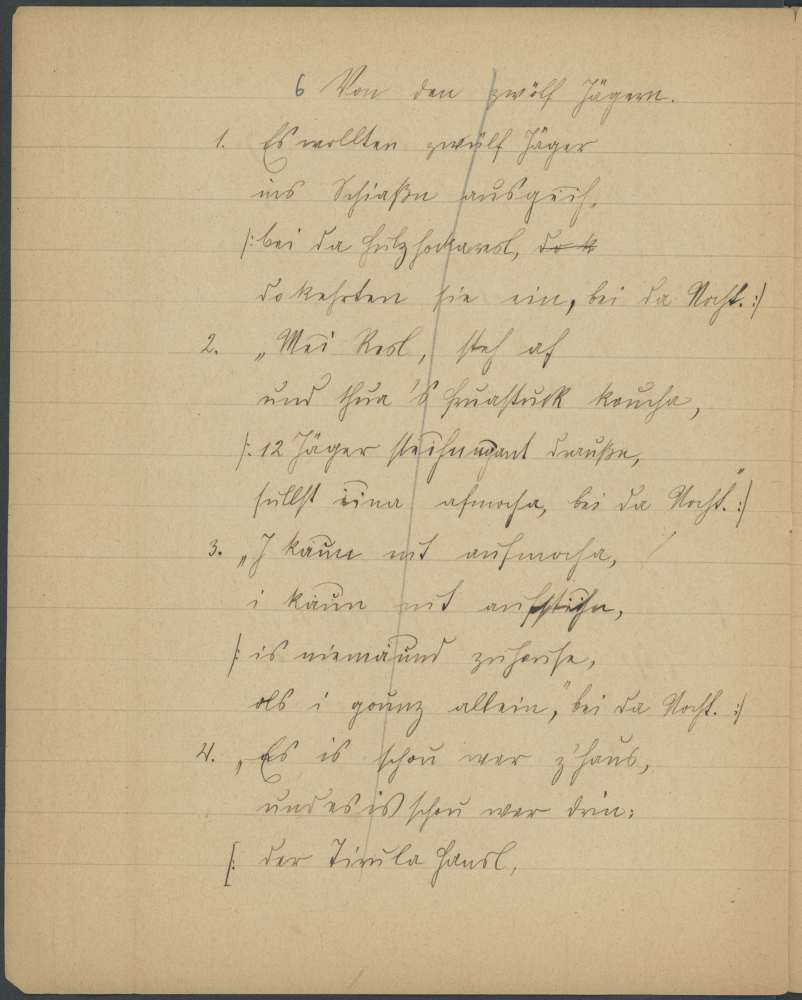 6 Von den zwölf Jägern.
1. Es wollten zwölf Jäger
ins Schiaßn ausgeih,
/: bei da Hulzhockaresl, do k
do kehrten sie ein, bei da Nocht. :/
2. „Mei Resl, steh af
und thua 's Fruastuck koucha,
/: 12 Jäger steihn draußn,
sullst eina afmocha, bei da Nocht." :/
3. „I kaun nit aufmocha,
i kaun nit aufsteihn,
/: is niemaund zuhause,
als i gaunz allein," bei da Nocht. :/
4. „Es is schou wer z'haus,
und es is schou wer drin:
/: der Tirula Hansl,